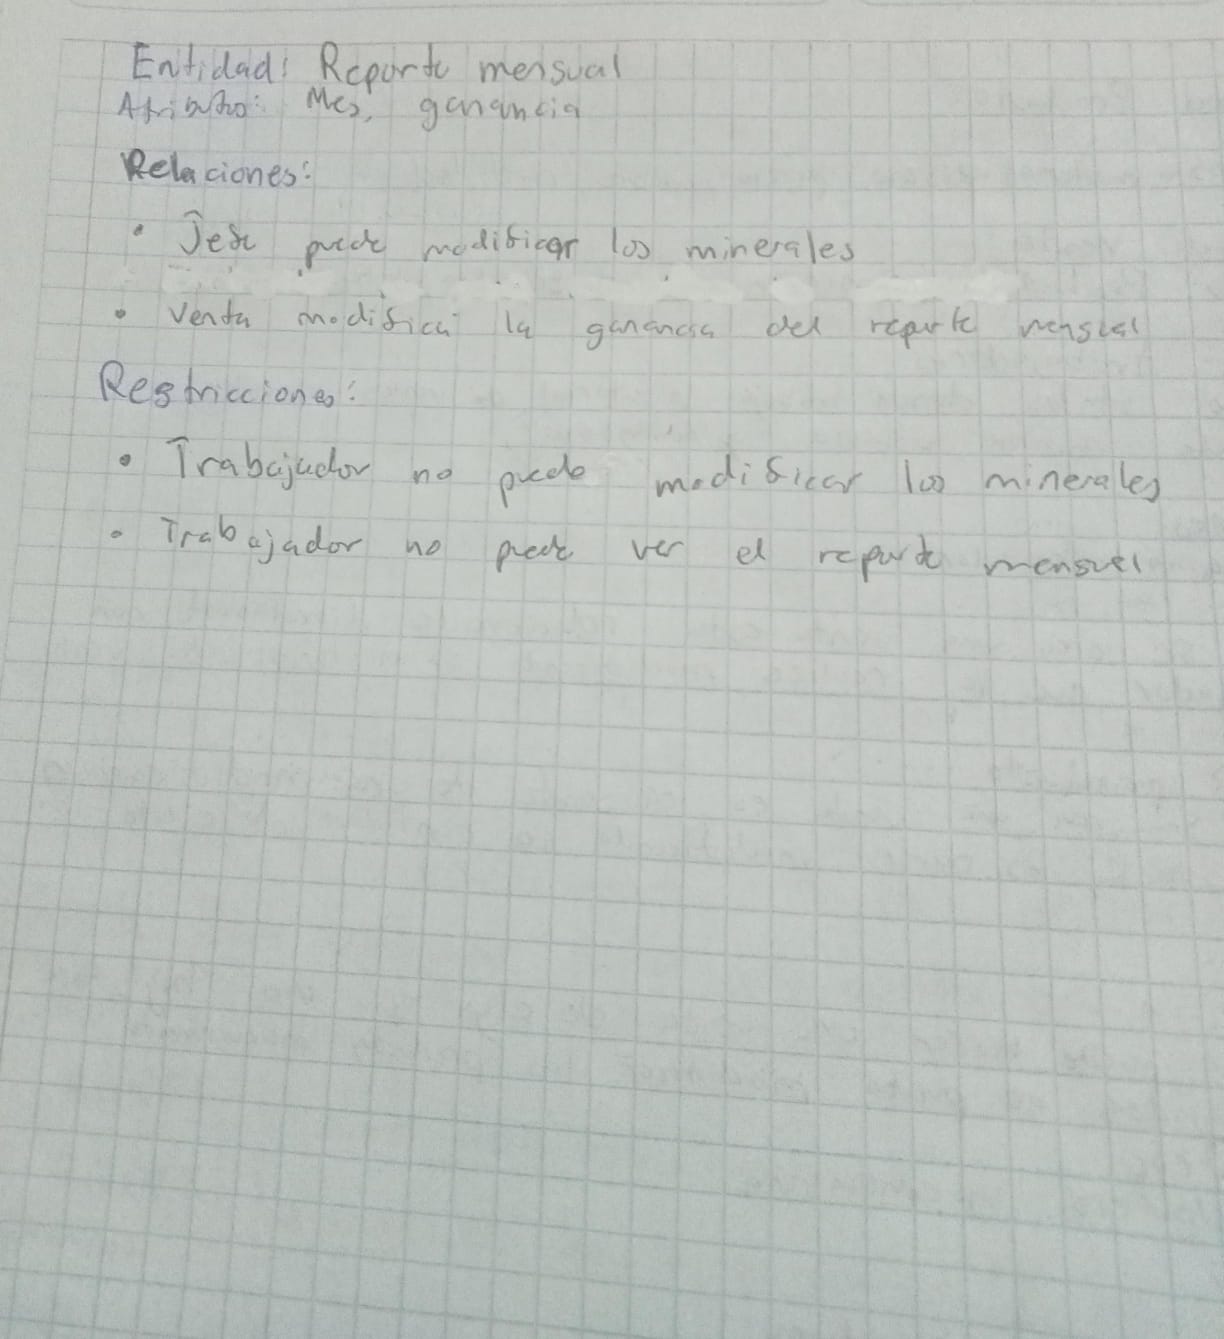 Entidad: Reporte mensual
Atributo: Mes, ganancia
Relaciones:
• Jefe puede modificar los minerales
• Venta modifica la ganancia del reporte mensual
Restricciones:
• Trabajador no puede modificar los minerales
• Trabajador no puede ver el reporte mensual